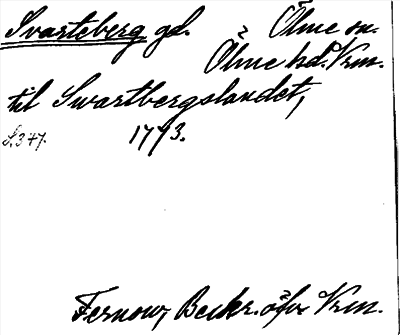 Svarteberg gd. Ölme sn.
Ölme hd. Vrm.
til Swartbergslandet,
S.347. 1773.
Fernow, Beskr. öfv. Vrm.